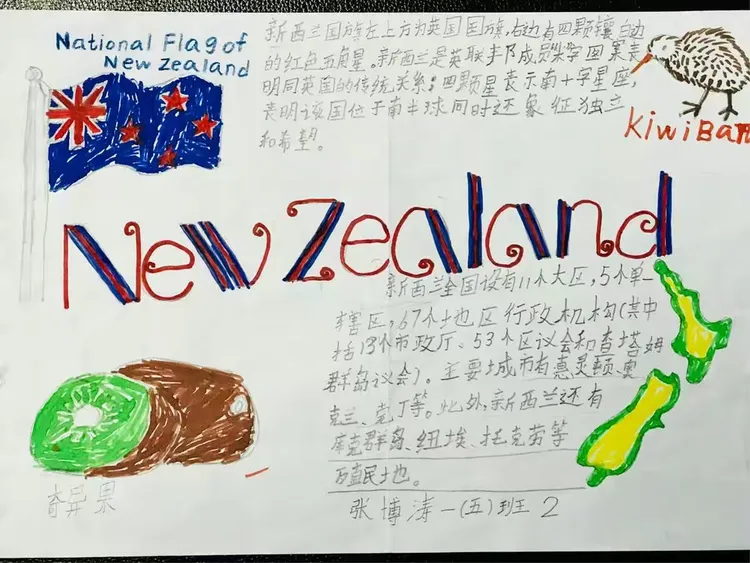 National Flag of
New Zealand
新西兰国旗左上方为英国国旗,右边有四颗镶白边
的红色五角星。新西兰是英联邦成员,米字图案表
明同英国的传统关系;四颗星表示南十字星座,
表明该国位于南半球同时还象征独立
和希望。
KiwiBa
New Zealand
新西兰全国设有11个大区,5个单一
辖区,67个地区行政机构(其中
括13个市政厅、53个区议会和查塔姆
群岛议会)。主要城市有惠灵顿、奥
克兰、克丁等。此外,新西兰还有
库克群岛、纽埃、托克劳等
殖民地。
奇异果
张博涛一(五)班 2